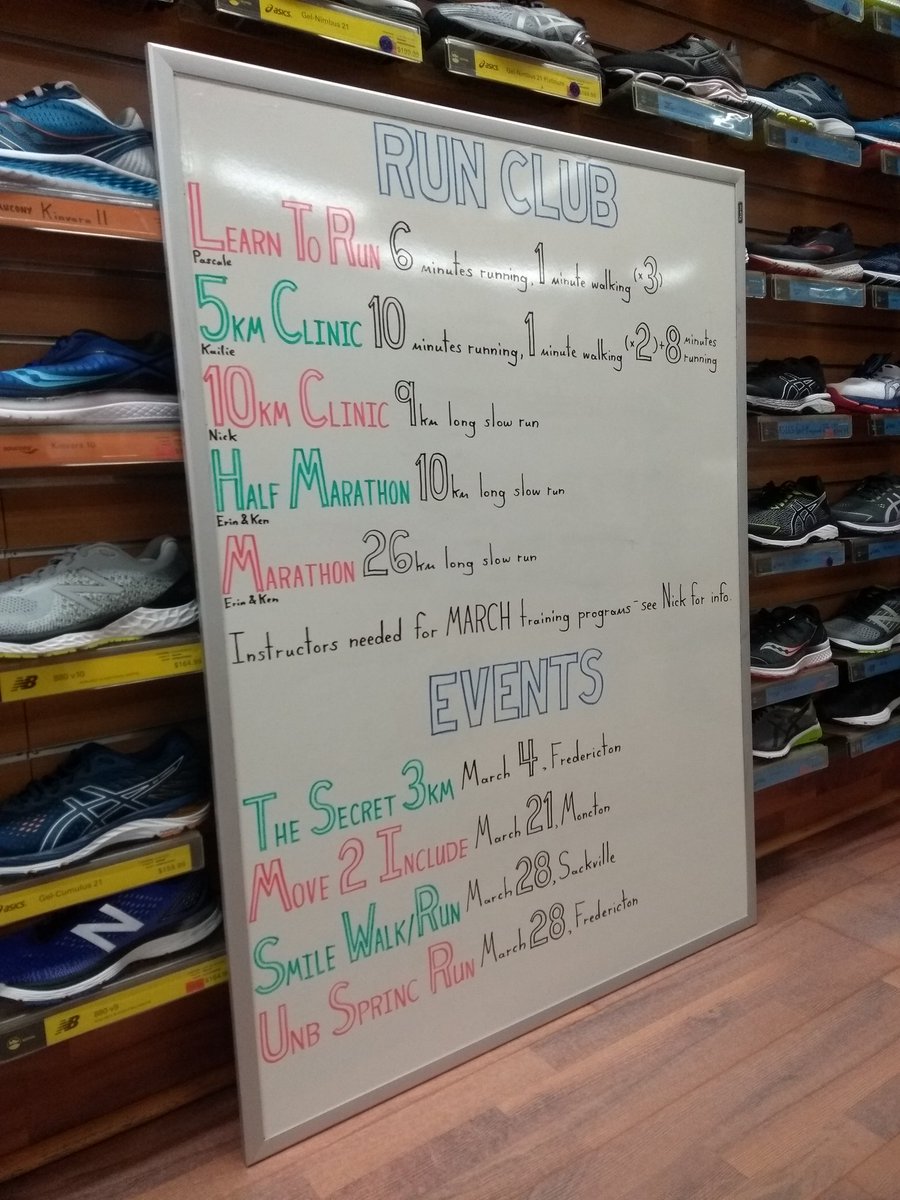 RUN CLUB
LEARN TO RUN 6 minutes running, 1 minute walking (x3)
Pascale
5KM CLINIC 10 minutes running, 1 minute walking (x2)+8 minutes running
Kailie
10KM CLINIC 9km long slow run
Nick
HALF MARATHON 10km long slow run
Erin & Ken
MARATHON 26km long slow run
Erin & Ken
Instructors needed for MARCH training programs - see Nick for info.
EVENTS
THE SECRET 3KM March 4, Fredericton
MOVE 2 INCLUDE March 21, Moncton
SMILE WALK/RUN March 28, Sackville
UNB SPRING RUN March 28, Fredericton
asics Gel-Nimbus 21
asics Gel-Nimbus 21 Platinum
SAUCONY Kinvara 11
Kinvara 10
NB 880 v10 $164.99
asics Gel-Cumulus 21 $159.99
NB 880 v9